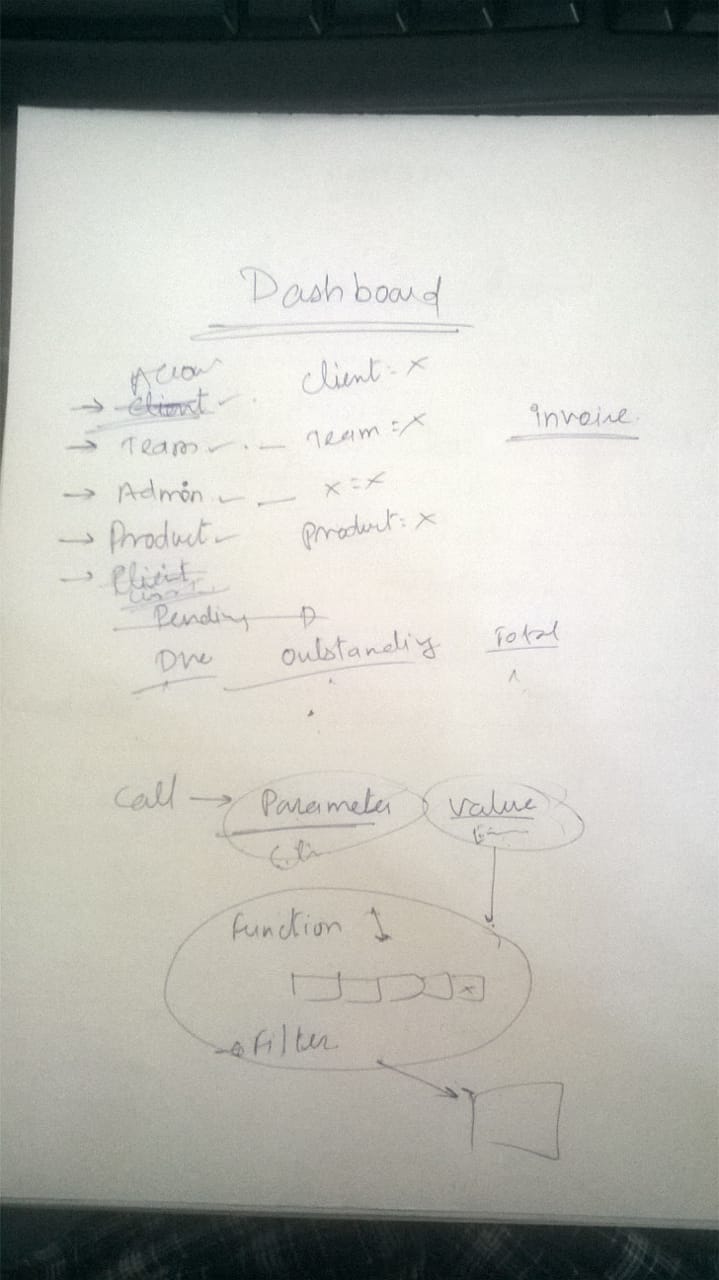 Dashboard
Client = x
→ Client ✓
invoice
→ Team ✓ . — Team = x
→ Admin ✓ — x = x
→ Product ✓ Product = x
→ Client
Pending D
Due Outstanding Total
Call → Parameter Value
Function ↓
x
→ Filter